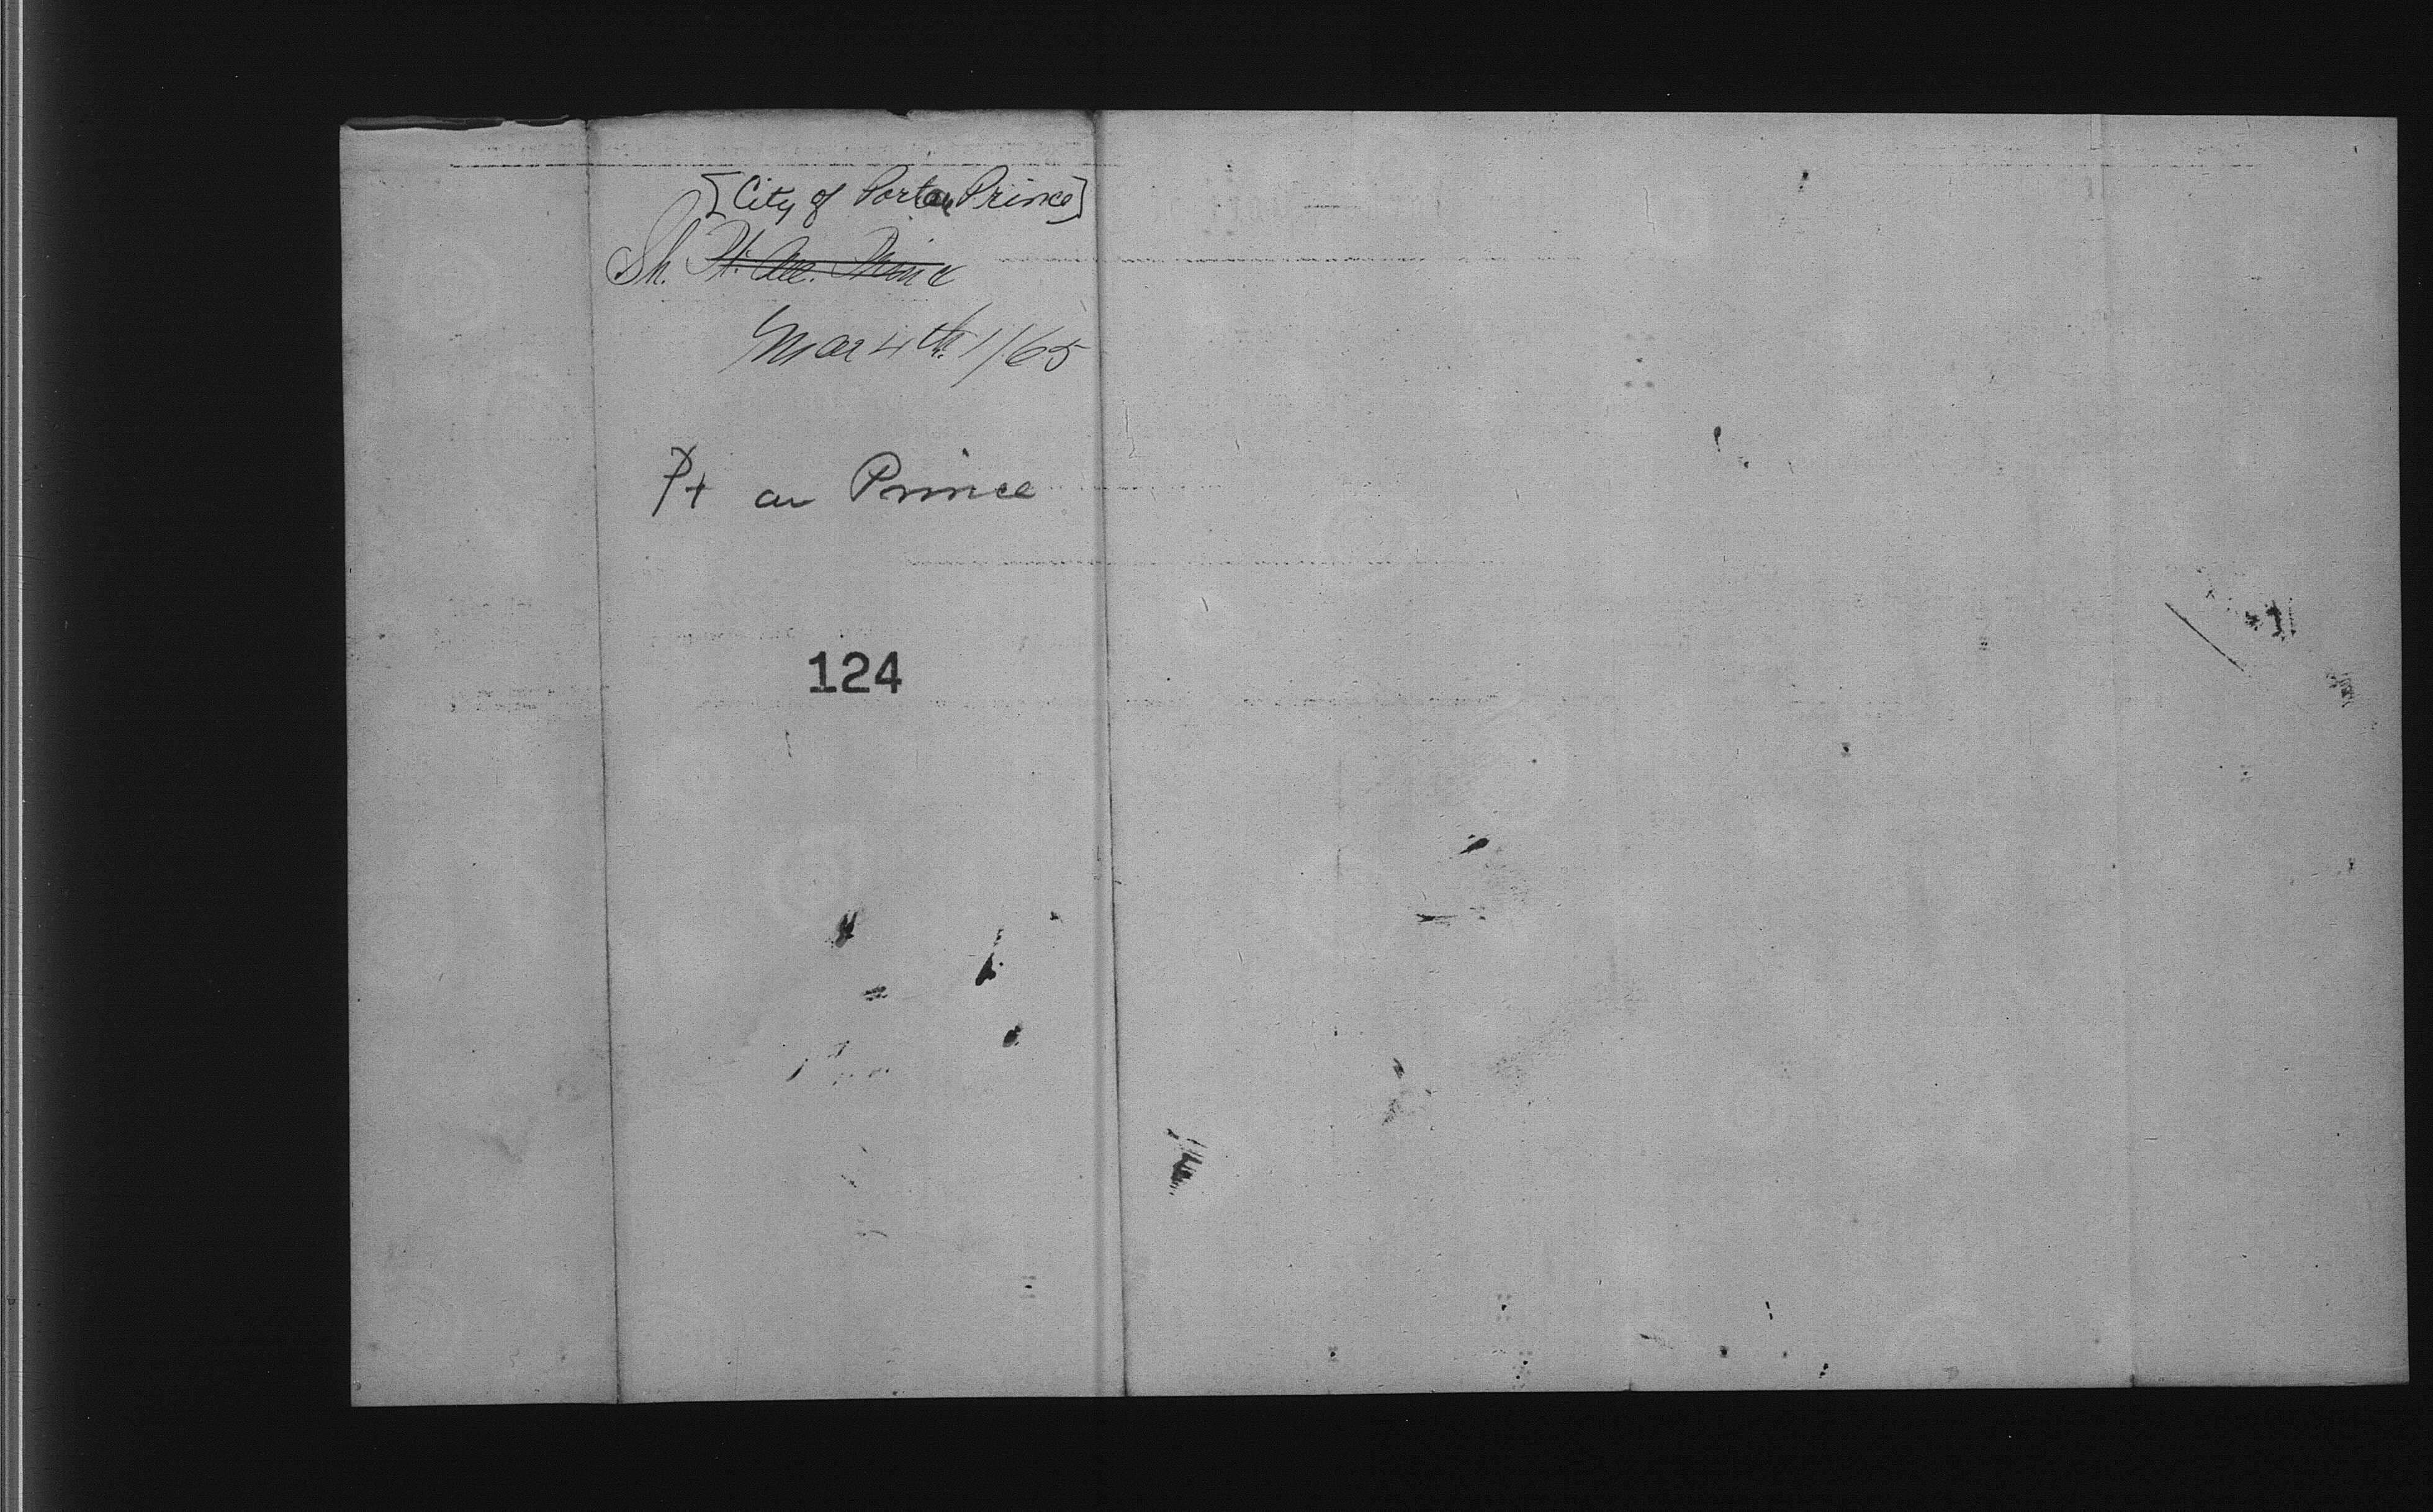 [City of Port au Prince]
Sh. Pt. Au. Prince
Mar 4th 1/65
Pt au Prince
124